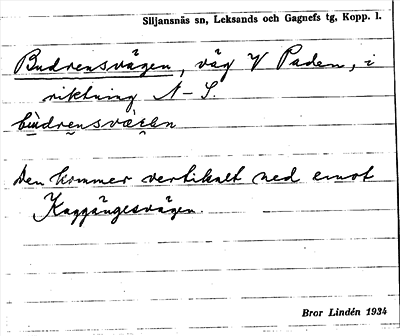 Siljansnäs sn, Leksands och Gagnefs tg, Kopp. l.
Budrensvägen, väg V Paden, i
riktning N-S.
bùdrensvæ̀gen
Den kommer vertikalt ned emot
Kaggängesvägen.
Bror Lindén 1934